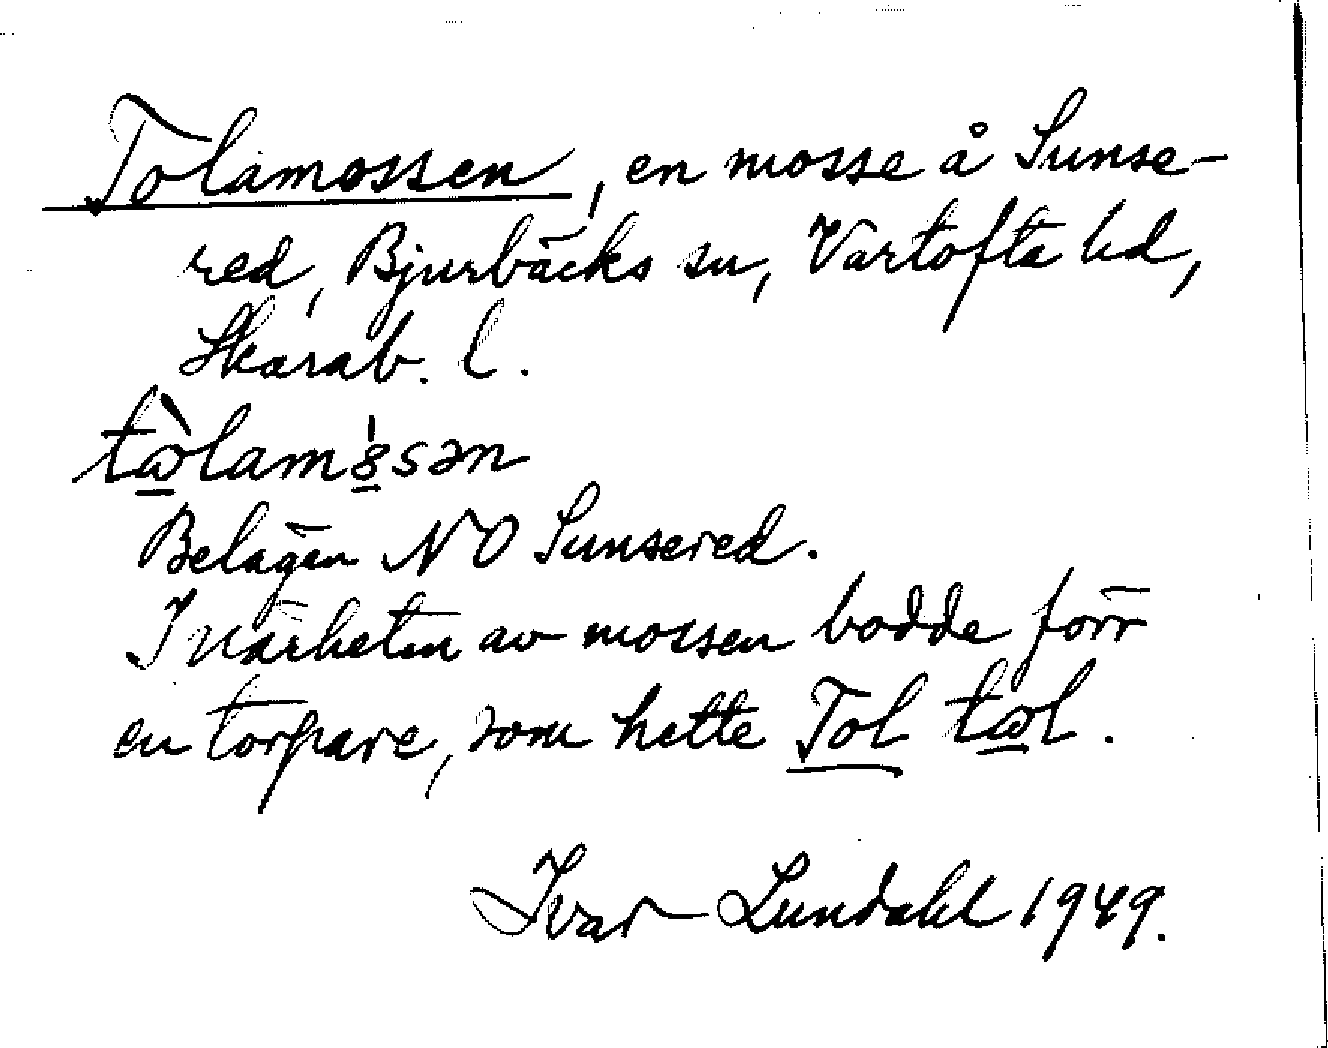 Tolamossen, en mosse å Sunse-
red, Bjurbäcks sn, Vartofta hd,
Skarab. l.
tὼlam8̍sən
Belägen NO Sunsered.
I närheten av mossen bodde förr
en torpare, som hette Tol tωl.
Ivar Lundahl 1949.